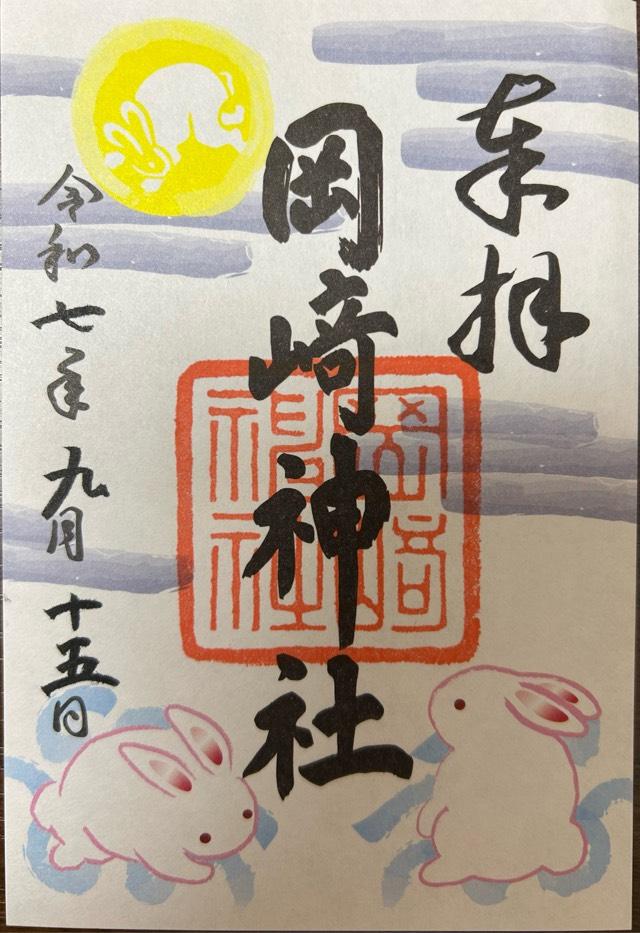 奉拝
岡崎神社
岡崎
神社
令和七年九月十五日